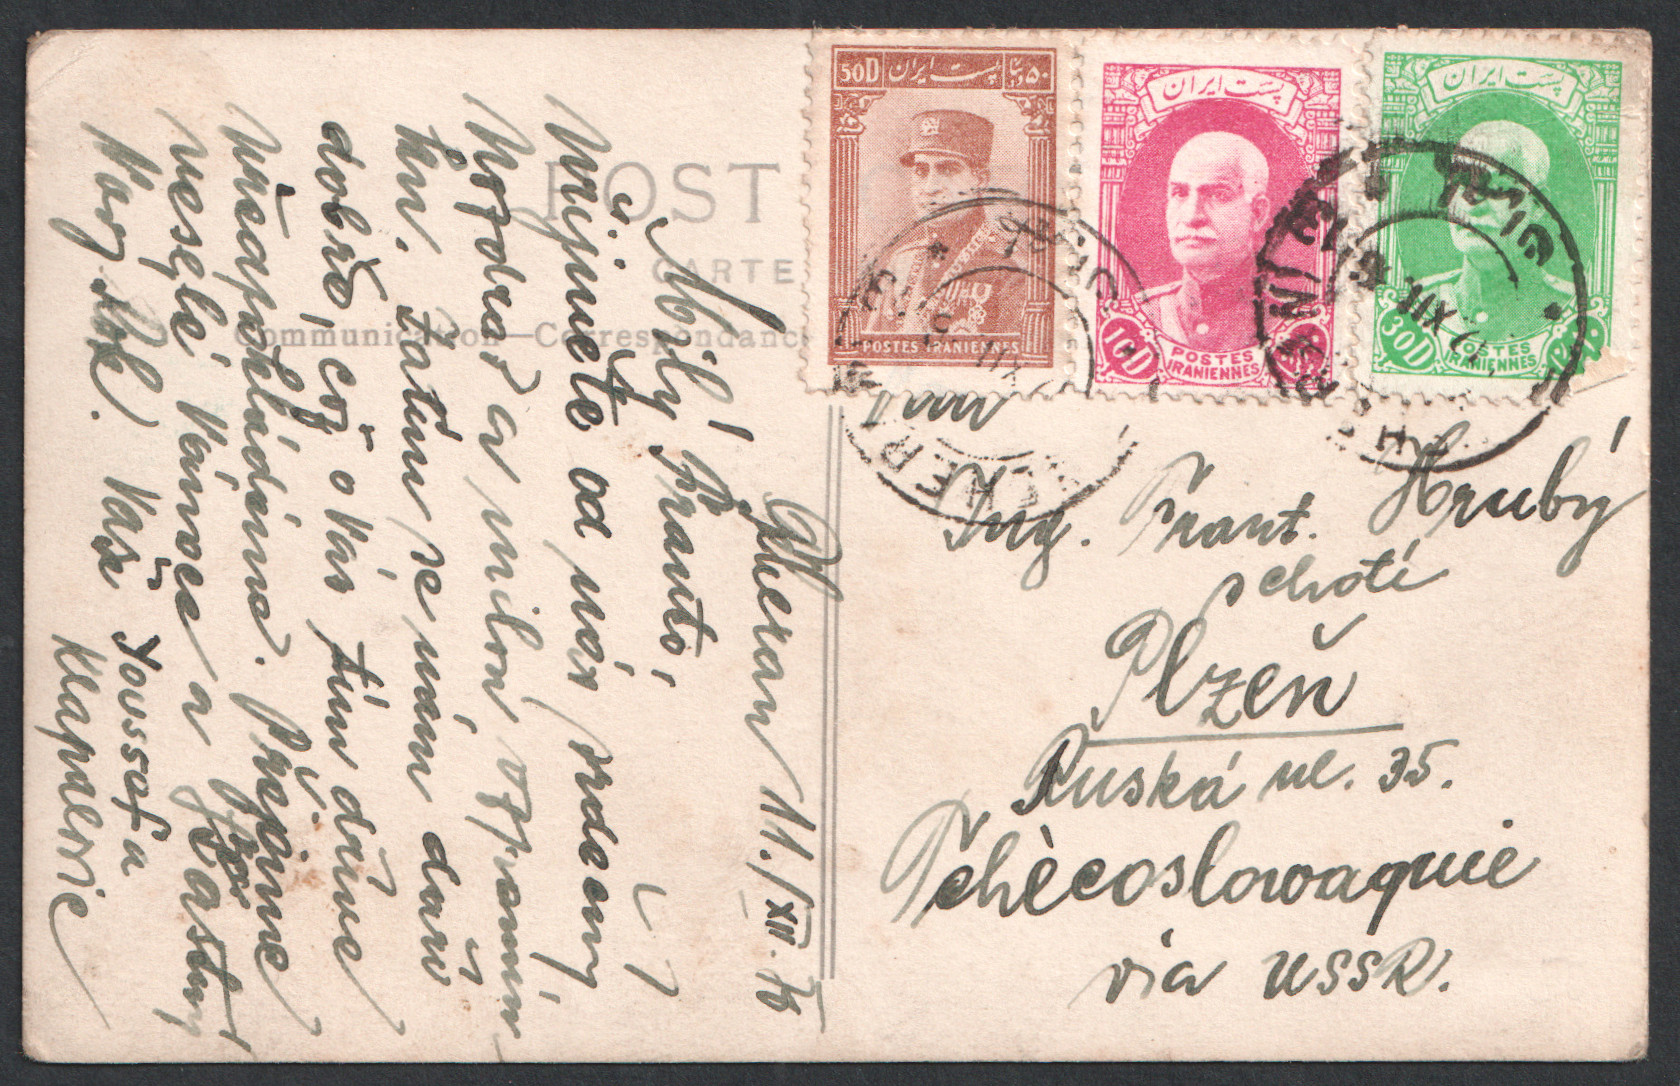 POST
CARTE
Communication—Correspondance
50D پست ایران ۵۰
POSTES IRANIENNES
پست ایران
10D
POSTES
IRANIENNES
پست ایران
30D
POSTES
IRANIENNES
TEHERAN
Teheran 11./XII. 35
Milý Franto,
přijměte od nás srdečný
pozdrav a milou vzpomín
ku. Zatím se nám daří
dobře, což o Vás tím dříve
předpokládáme. Přejeme
veselé Vánoce a šťastný
Nový Rok. Vaše Joussefa
Klapnerrie
Pan
Ing. Frant. Hrubý
Plzeň
Ruská ul. 35.
Tchècoslowaquie
via USSR.